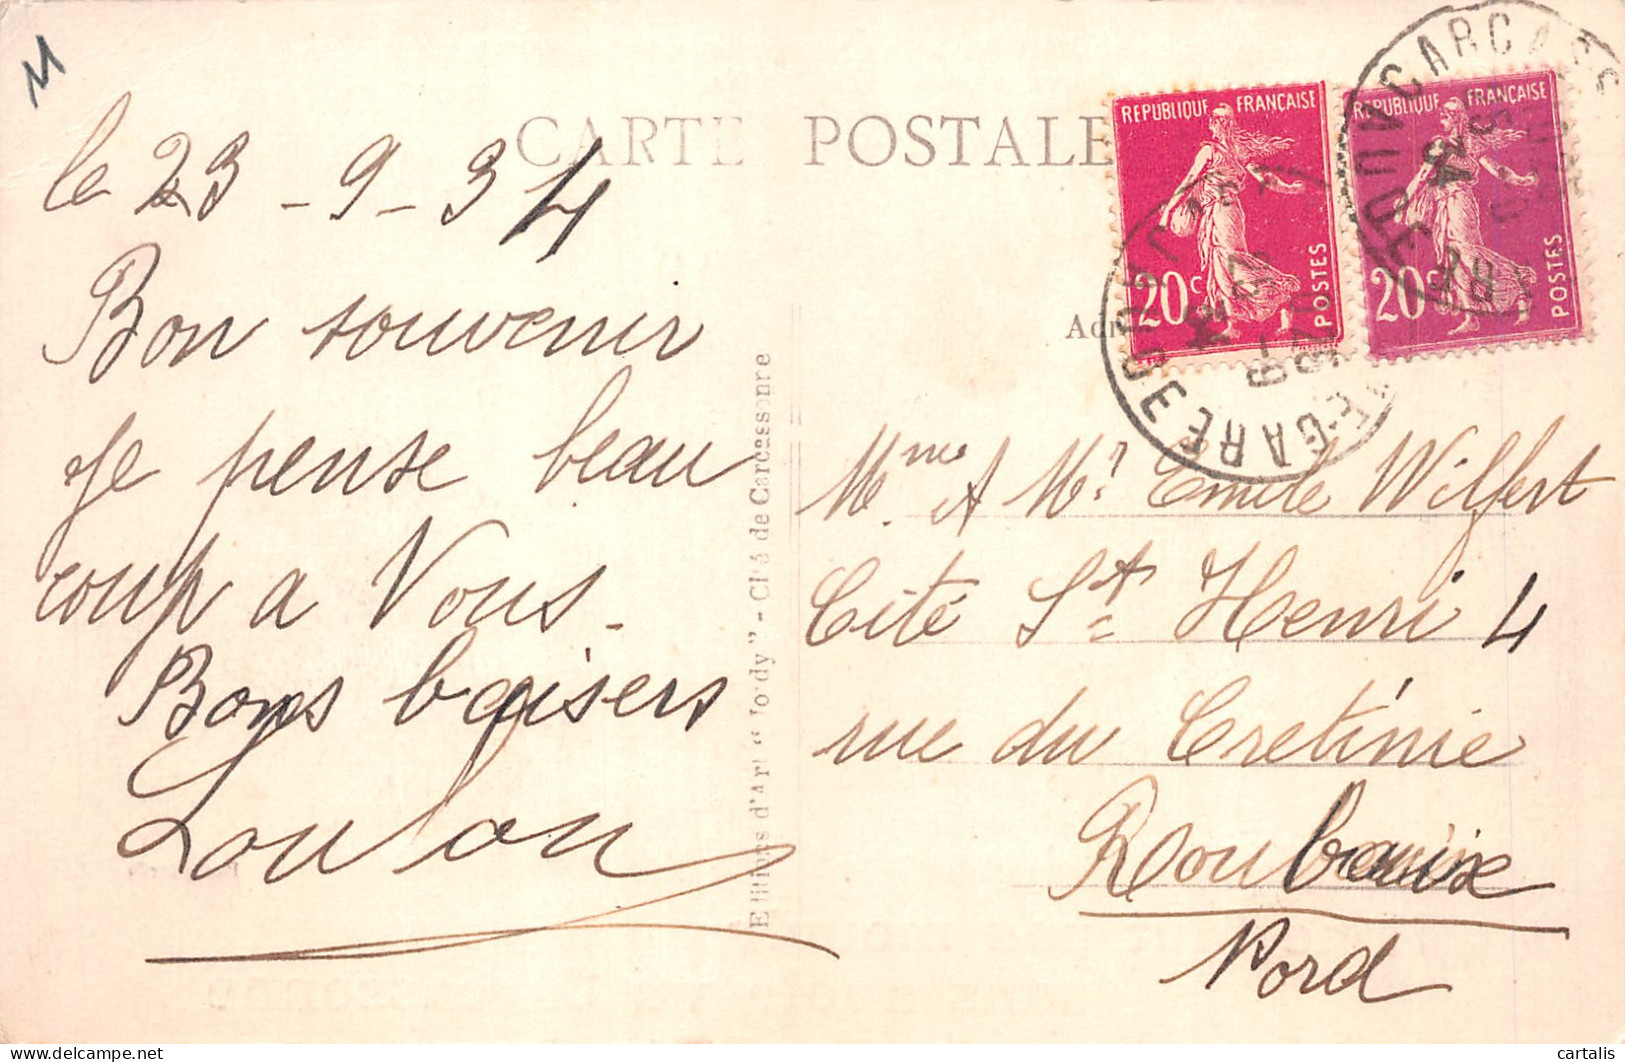 M
CARTE POSTALE
le 23-9-34
Bon souvenir
Je pense beau
coup a Vous -
Bons baisers
Loulou
Editions d'Art "Jordy" - Cité de Carcassonne
REPUBLIQUE FRANÇAISE
20c
POSTES
REPUBLIQUE FRANÇAISE
20c
POSTES
CARCASS
GARE
AUDE
34
Mme A Mr Emile Wilfert
Cité St Henri 4
rue du Cretinie
Roubaix
Nord
cartalis delcampe.net